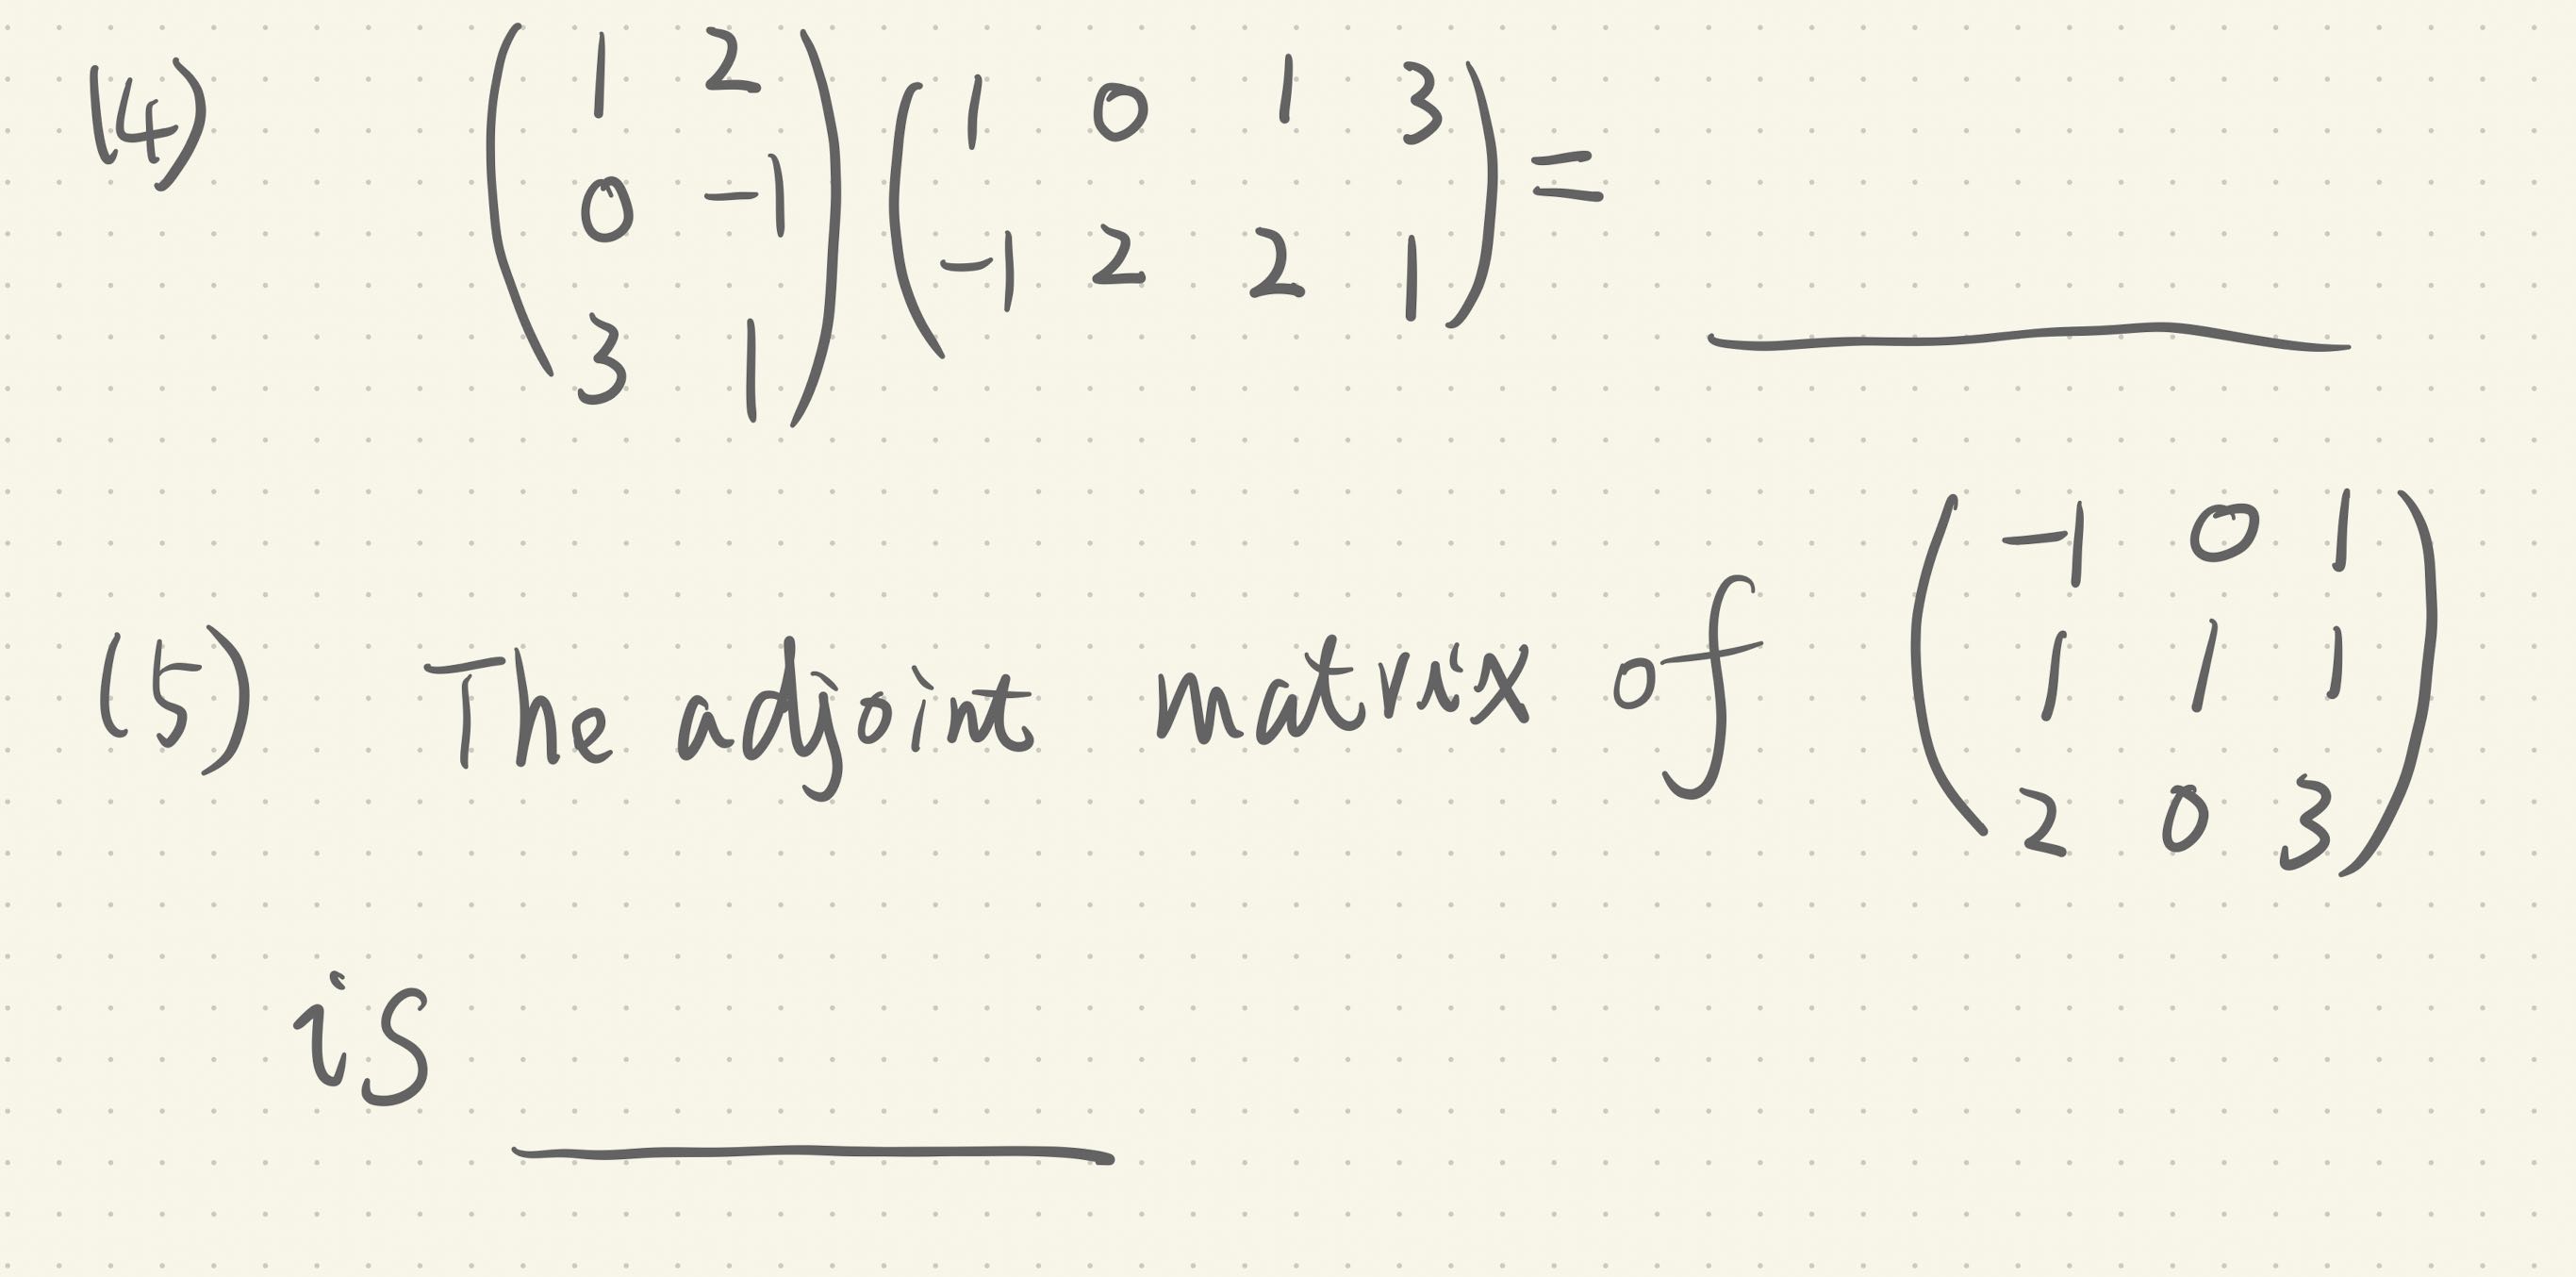 (4) \begin{pmatrix} 1 & 2 \\ 0 & -1 \\ 3 & 1 \end{pmatrix} \begin{pmatrix} 1 & 0 & 1 & 3 \\ -1 & 2 & 2 & 1 \end{pmatrix} = ______
(5) The adjoint matrix of \begin{pmatrix} -1 & 0 & 1 \\ 1 & 1 & 1 \\ 2 & 0 & 3 \end{pmatrix}
is ______